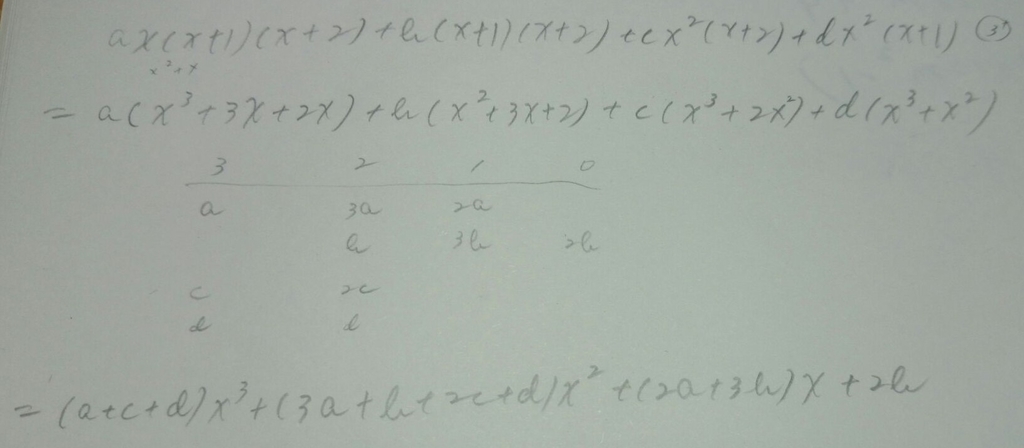 ax(x+1)(x+2)+b(x+1)(x+2)+cx²(x+2)+dx²(x+1) ③
x²+x
= a(x³+3x+2x)+b(x²+3x+2)+c(x³+2x²)+d(x³+x²)
3 2 1 0
a 3a 2a
b 3b 2b
c 2c
d d
= (a+c+d)x³+(3a+b+2c+d)x²+(2a+3b)x+2b